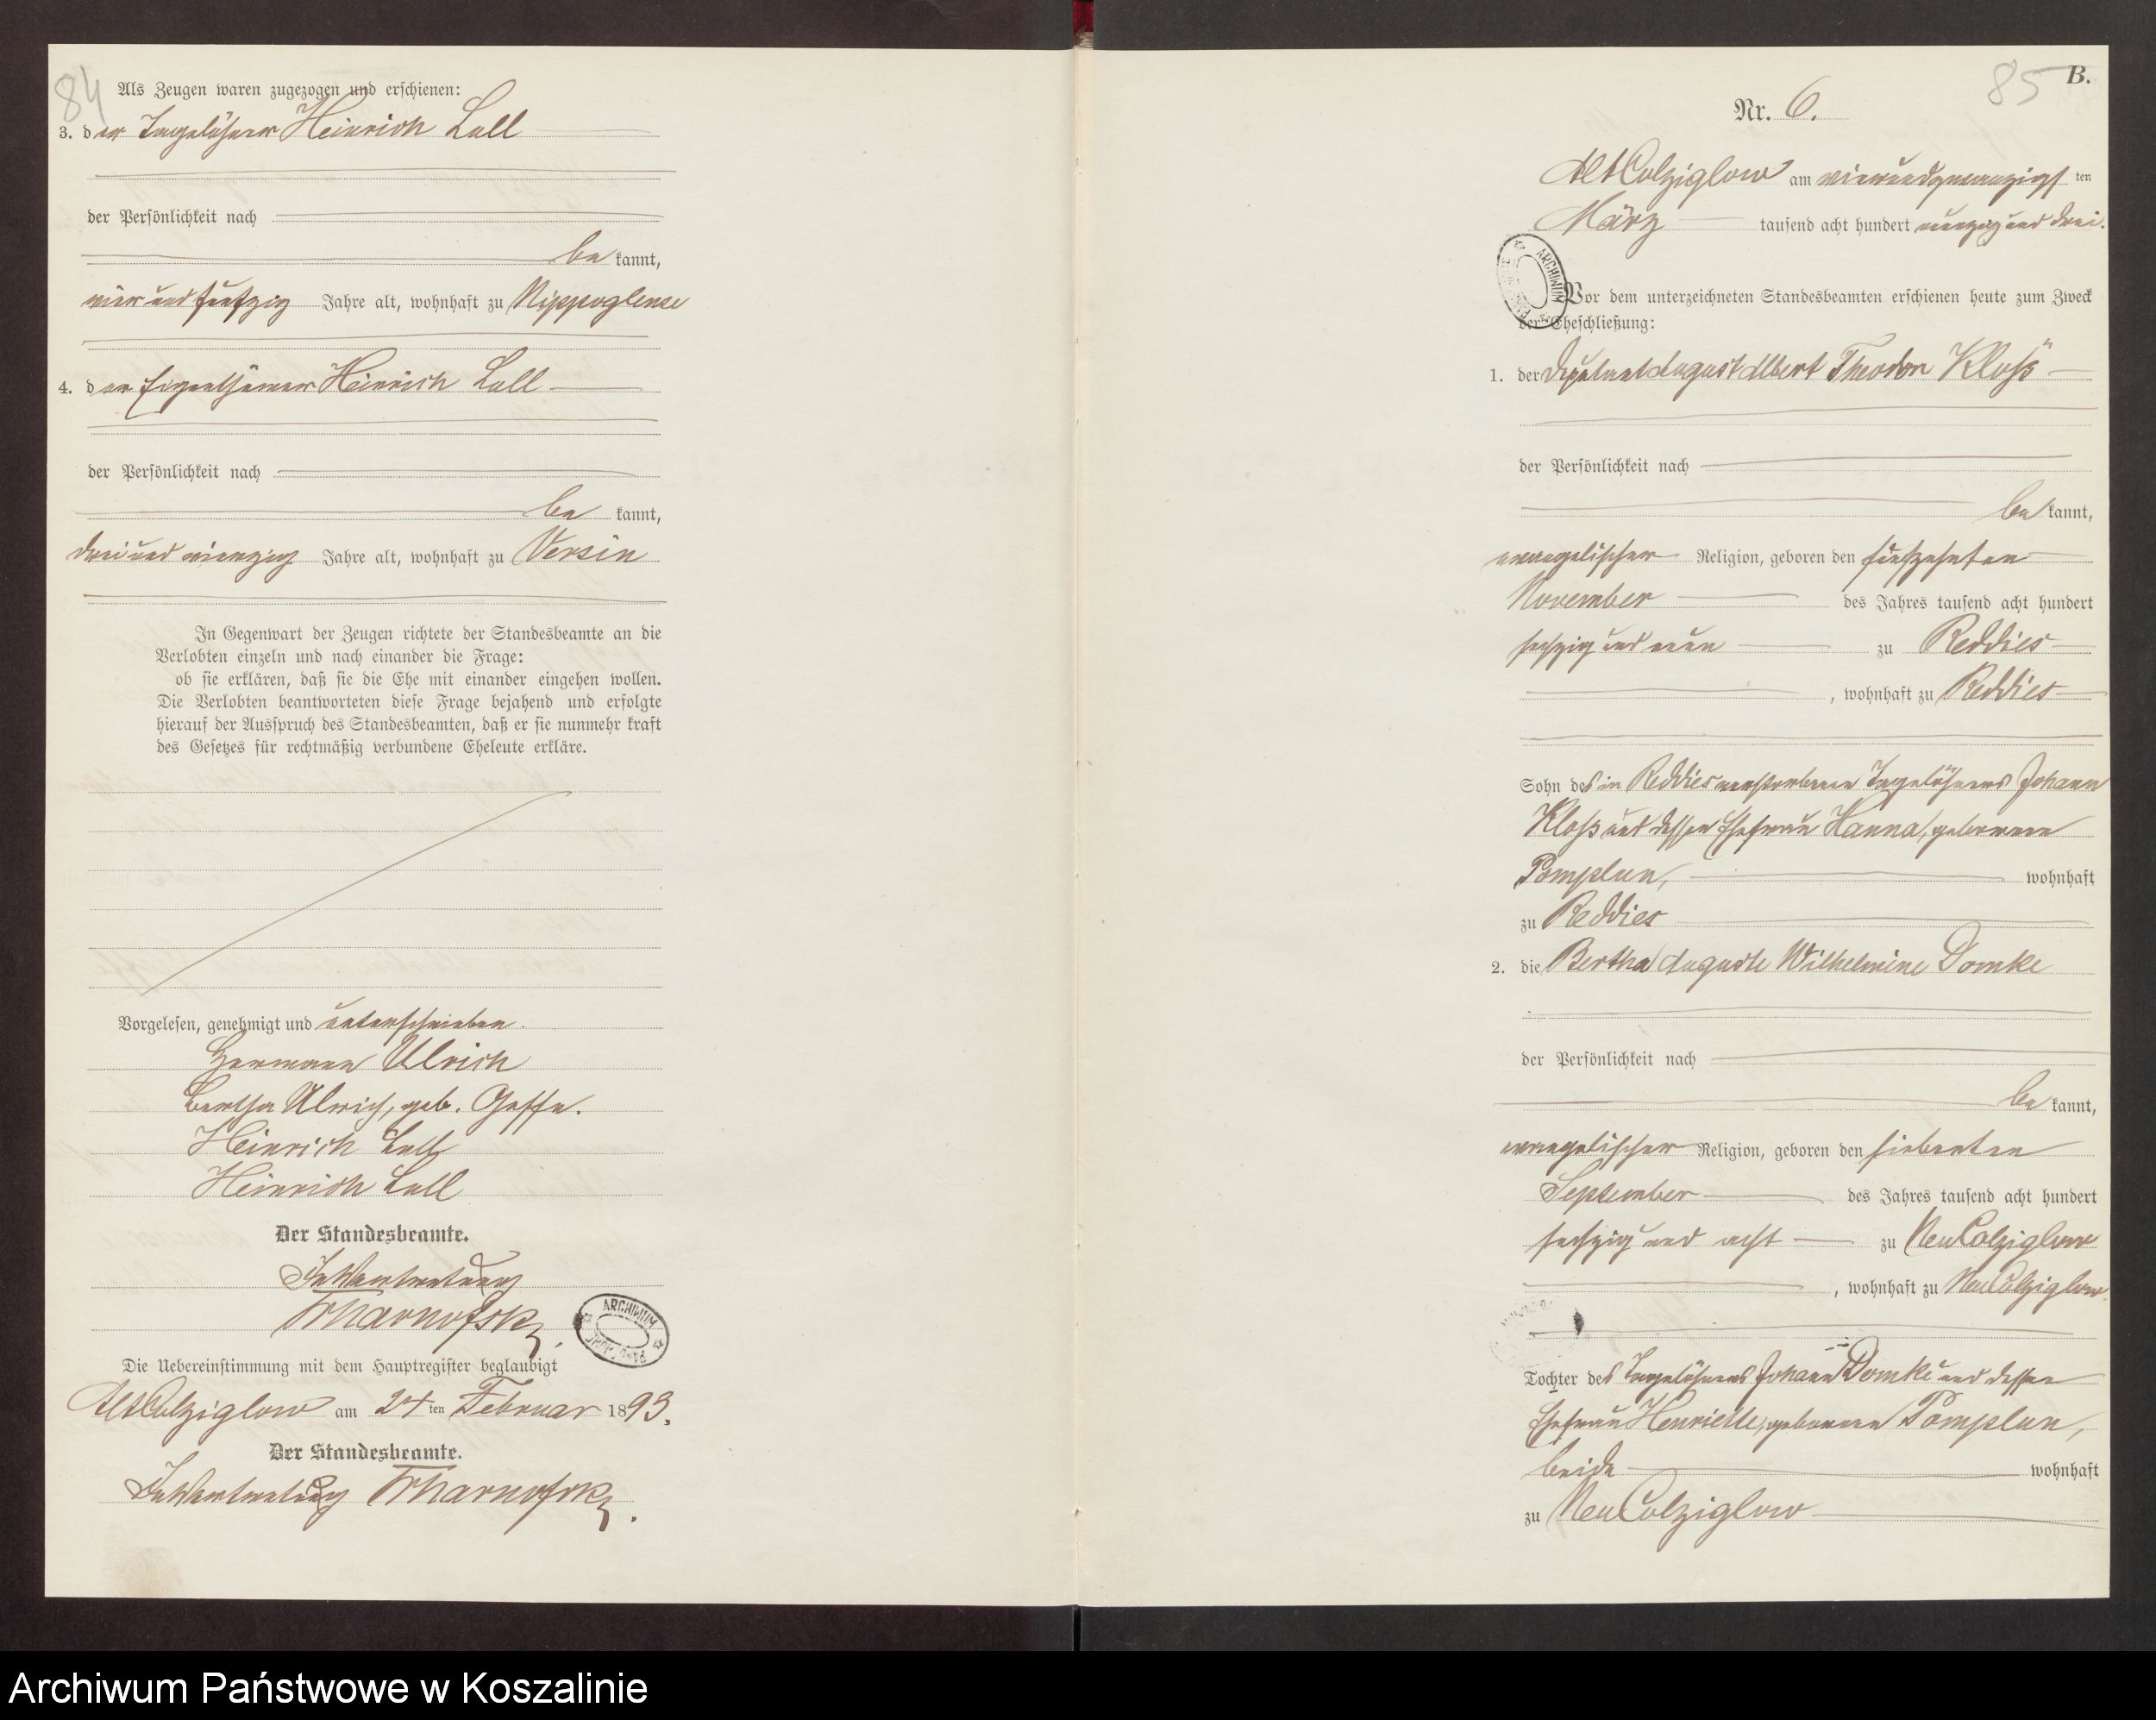 84
Als Zeugen waren zugezogen und erschienen:
3. der Tagelöhner Heinrich Lall
der Persönlichkeit nach
be kannt,
vier und fünfzig Jahre alt, wohnhaft zu Nippoglense
4. der Eigenthümer Heinrich Lall
der Persönlichkeit nach
be kannt,
drei und vierzig Jahre alt, wohnhaft zu Versin
In Gegenwart der Zeugen richtete der Standesbeamte an die
Verlobten einzeln und nach einander die Frage:
ob sie erklären, daß sie die Ehe mit einander eingehen wollen.
Die Verlobten beantworteten diese Frage bejahend und erfolgte
hierauf der Ausspruch des Standesbeamten, daß er sie nunmehr kraft
des Gesetzes für rechtmäßig verbundene Eheleute erkläre.
Vorgelesen, genehmigt und unterschrieben.
Hermann Ulrich
Bertha Ulrich, geb.
Heinrich Lall
Heinrich Lall
Der Standesbeamte.
In Vertretung
ARCHIWUM
Die Uebereinstimmung mit dem Hauptregister beglaubigt
Alt Colziglow am 24 ten Februar 1893.
Der Standesbeamte.
In Vertretung
85
B.
Nr. 6.
Alt Colziglow am vierundzwanzigsten
März tausend acht hundert neunzig und drei.
ARCHIWUM
Vor dem unterzeichneten Standesbeamten erschienen heute zum Zweck
der Eheschließung:
1. der Deputant August Albert Theodor Kloß
der Persönlichkeit nach
be kannt,
evangelischer Religion, geboren den fünfzehnten
November des Jahres tausend acht hundert
sechzig und neun zu Reddies
, wohnhaft zu Reddies
Sohn des in Reddies verstorbenen Tagelöhners Johann
Kloß und dessen Ehefrau Hanna, geborenen
Pomplun, wohnhaft
zu Reddies
2. die Bertha Auguste Wilhelmine Domke
der Persönlichkeit nach
be kannt,
evangelischer Religion, geboren den siebenten
September des Jahres tausend acht hundert
sechzig und acht zu Neu Colziglow
, wohnhaft zu Neu Colziglow.
Tochter des Tagelöhners Johann Domke und dessen
Ehefrau Henriette, geborenen Pomplun,
beide wohnhaft
zu Neu Colziglow
Archiwum Państwowe w Koszalinie